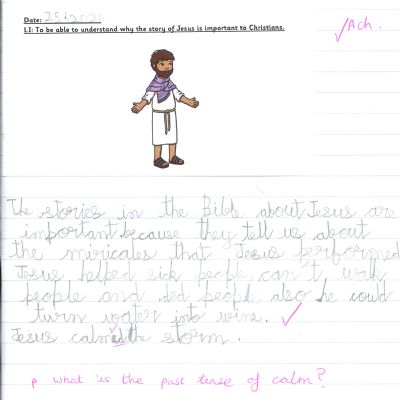 Date: 25.1.2021
L.I: To be able to understand why the story of Jesus is important to Christians.
Ach.
The stories in the Bible about Jesus are
important because they tell us about
the miricales that Jesus performed
Jesus helped sick people, can't walk
people and ded people also he could
turn water into wine.
Jesus calmed the storm.
p what is the past tense of calm?